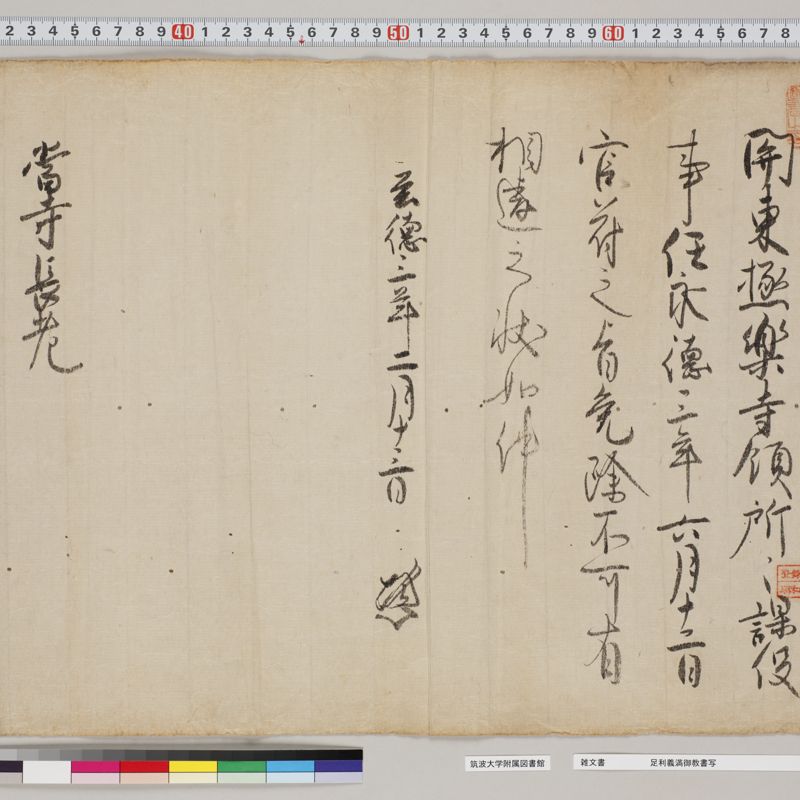 関東極楽寺領所々課役
事任永徳三年六月十二日
官苻之旨免除不可有
相違之状如件
至徳三年二月十三日
當寺長老
2 3 4 5 6 7 8 9 40 1 2 3 4 5 6 7 8 9 50 1 2 3 4 5 6 7 8 9 60 1 2 3 4 5 6 7 8
筑波大学附属図書館
雑文書 足利義満御教書写